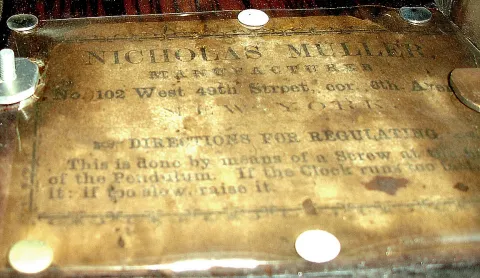 NICHOLAS MULLER,
MANUFACTURER
No. 102 West 49th Street, cor. 6th Ave
NEW-YORK
DIRECTIONS FOR REGULATING
This is done by means of a Screw at
of the Pendulum. If the Clock runs too
it; if too slow, raise it.